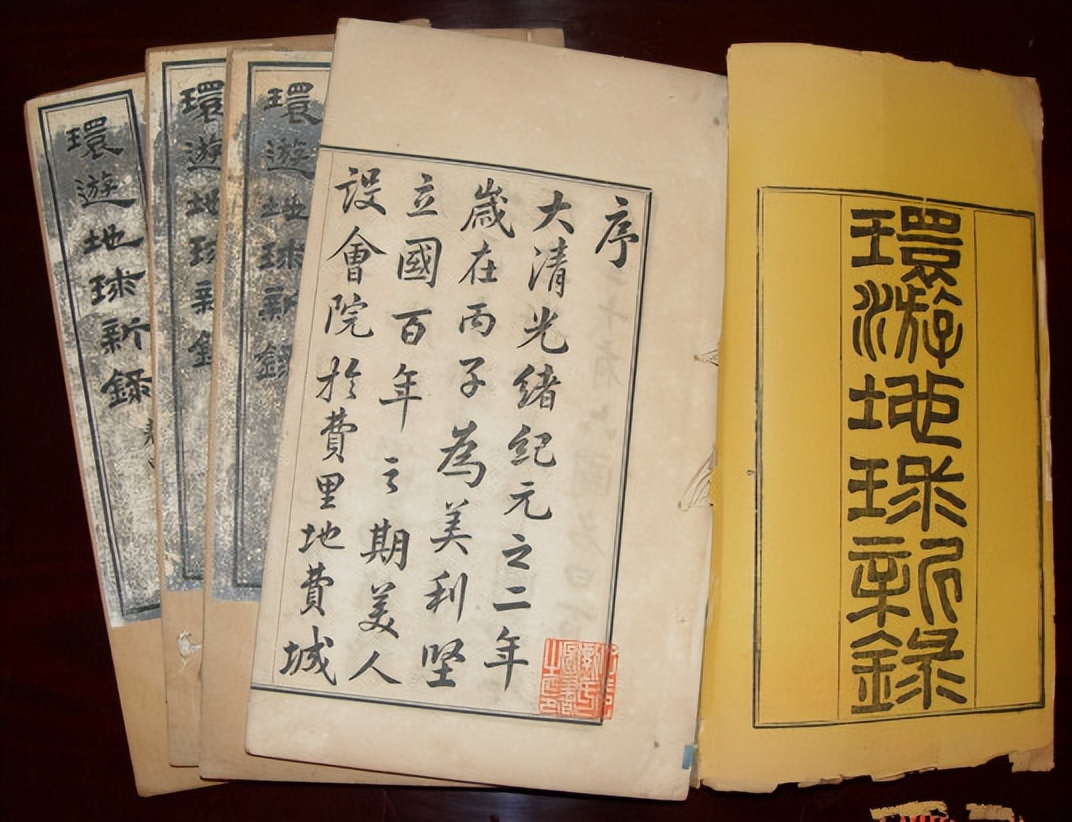 環游地球新錄
序
大清光緒紀元之二年
歲在丙子為美利堅
立國百年之期美人
設會院於費里地費城
環遊地球新錄
環遊地球新錄
環遊地球新錄